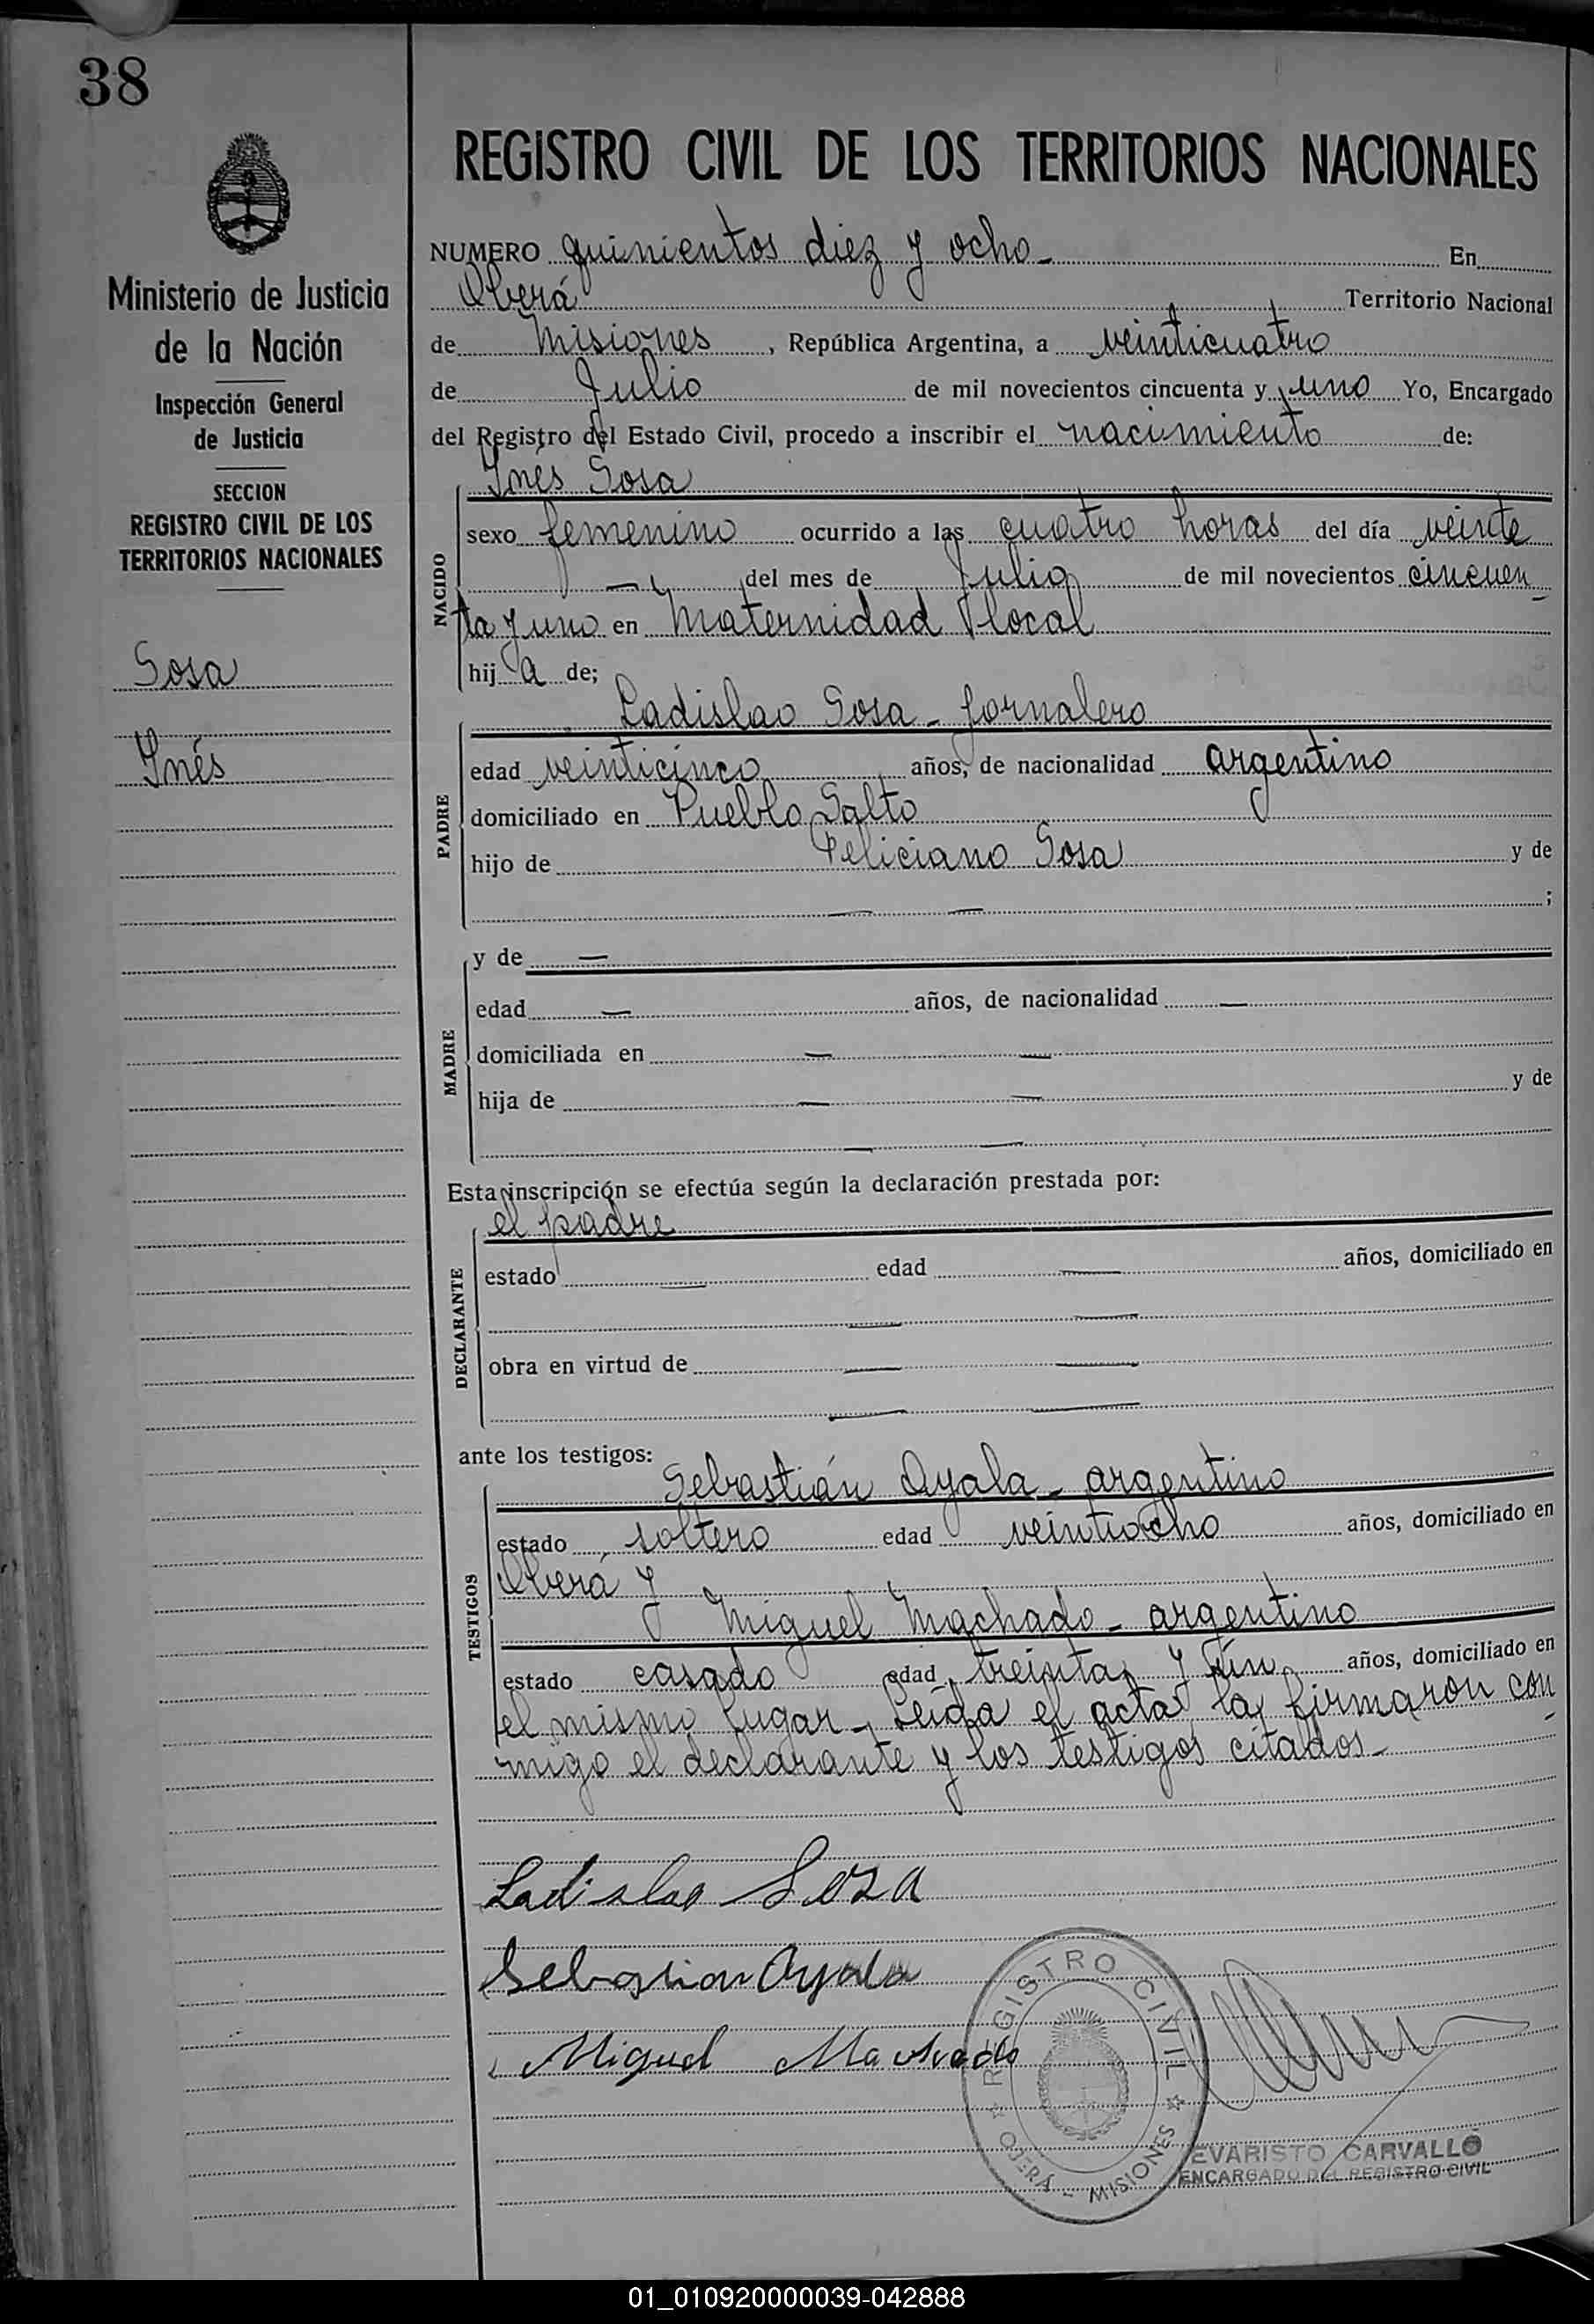 38
REGISTRO CIVIL DE LOS TERRITORIOS NACIONALES
Ministerio de Justicia
de la Nación
Inspección General
de Justicia
SECCION
REGISTRO CIVIL DE LOS
TERRITORIOS NACIONALES
Sosa
Inés
NUMERO quinientos diez y ocho - En
Oberá Territorio Nacional
de Misiones, República Argentina, a veinticuatro
de Julio de mil novecientos cincuenta y uno Yo, Encargado
del Registro del Estado Civil, procedo a inscribir el nacimiento de:
Inés Sosa
NACIDO
sexo femenino ocurrido a las cuatro horas del día veinte
— del mes de Julio de mil novecientos cincuen-
ta y uno en Maternidad local
hij a de;
Ladislao Sosa - jornalero
PADRE
edad veinticinco años, de nacionalidad argentino
domiciliado en Pueblo Salto
hijo de Feliciano Sosa y de
— — ;
MADRE
y de —
edad — años, de nacionalidad —
domiciliada en — —
hija de — — y de
— —
Esta inscripción se efectúa según la declaración prestada por:
el padre
DECLARANTE
estado — edad — años, domiciliado en
— —
obra en virtud de — —
— —
ante los testigos:
Sebastián Ayala - argentino
TESTIGOS
estado soltero edad veintiocho años, domiciliado en
Oberá y
Miguel Machado - argentino
estado casado edad treinta y un años, domiciliado en
el mismo lugar - Leída el acta la firmaron con-
migo el declarante y los testigos citados -
Ladislao Sosa
Sebastian Ayala
Miguel Machado
REGISTRO CIVIL
OBERÁ - MISIONES
EVARISTO CARVALLO
ENCARGADO DEL REGISTRO CIVIL
01_010920000039-042888